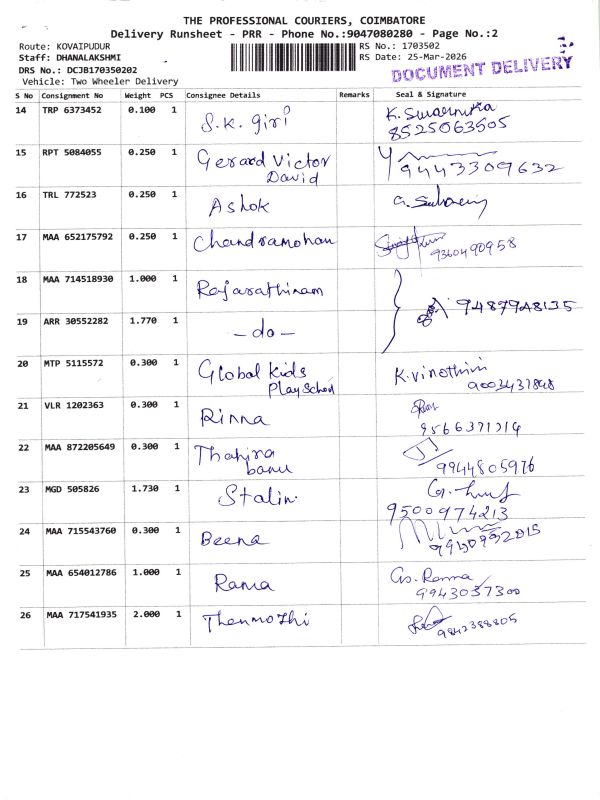 THE PROFESSIONAL COURIERS, COIMBATORE
Delivery Runsheet - PRR - Phone No.:9047080280 - Page No.:2
Route: KOVAIPUDUR RS No.: 1703502
Staff: DHANALAKSHMI RS Date: 25-Mar-2026
DRS No.: DCJB170350202
Vehicle: Two Wheeler Delivery
DOCUMENT DELIVERY
S No Consignment No Weight PCS Consignee Details Remarks Seal & Signature
14 TRP 6373452 0.100 1 S.K. giri K. Swarnika
8525063505
15 RPT 5084055 0.250 1 Gerard Victor
David 9443309632
16 TRL 772523 0.250 1 Ashok
17 MAA 652175792 0.250 1 Chandramohan 9360490958
18 MAA 714518930 1.000 1 Rajarathinam
19 ARR 30552282 1.770 1 -do- 9487948135
20 MTP 5115572 0.300 1 Global kids
Play School K. vinothini
21 VLR 1202363 0.300 1 Rinna
9566371714
22 MAA 872205649 0.300 1 Thahira
banu 9944805976
23 MGD 505826 1.730 1 Stalin
9500974213
24 MAA 715543760 0.300 1 Beena
25 MAA 654012786 1.000 1 Rama Gs. Ramma
9943037300
26 MAA 717541935 2.000 1 Thenmozhi
9842388805